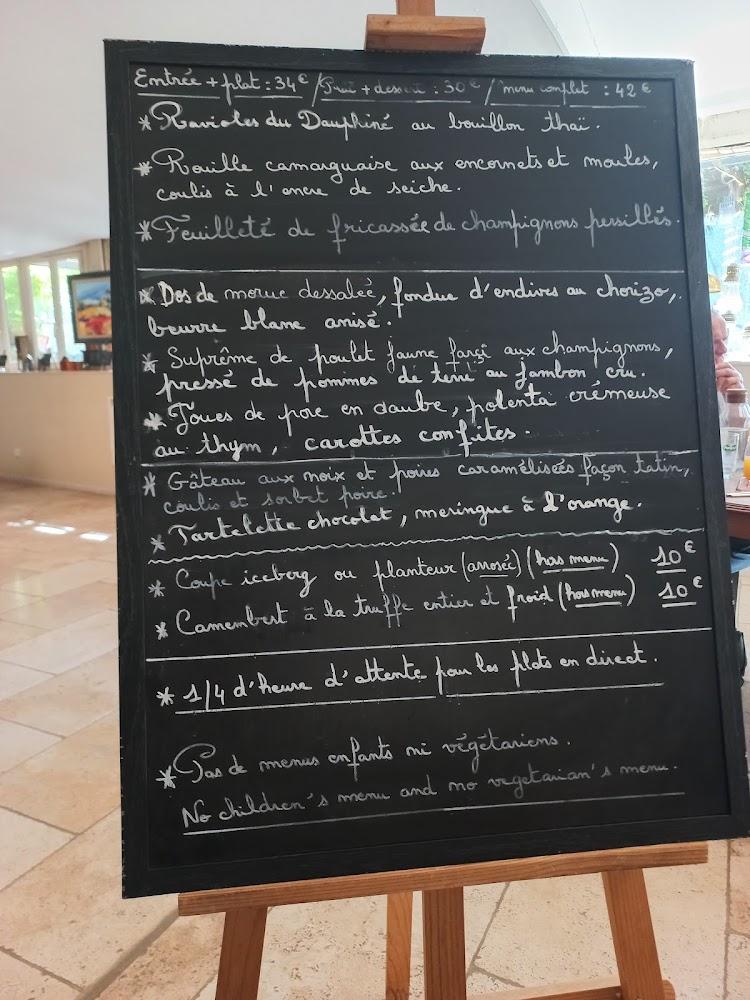 Entrée + plat : 34€ / Plat + dessert : 30€ / menu complet : 42€
* Ravioles du Dauphiné au bouillon thaï.
* Rouille camarguaise aux encornets et moules,
coulis à l'encre de seiche.
* Feuilleté de fricassée de champignons persillés.
* Dos de morue dessalée, fondue d'endives au chorizo,
beurre blanc anisé.
* Suprême de poulet jaune farçi aux champignons,
pressé de pommes de terre au jambon cru.
* Joues de porc en daube, polenta crémeuse
au thym, carottes confites.
* Gâteau aux noix et poires caramélisées façon tatin,
coulis et sorbet poire.
* Tartelette chocolat, meringue à l'orange.
* Coupe iceberg ou planteur (arrosée) (hors menu) 10€
* Camembert à la truffe entier et froid (hors menu) 10€
* 1/4 d'heure d'attente pour les plats en direct.
* Pas de menus enfants ni végétariens.
No children's menu and no vegetarian's menu.